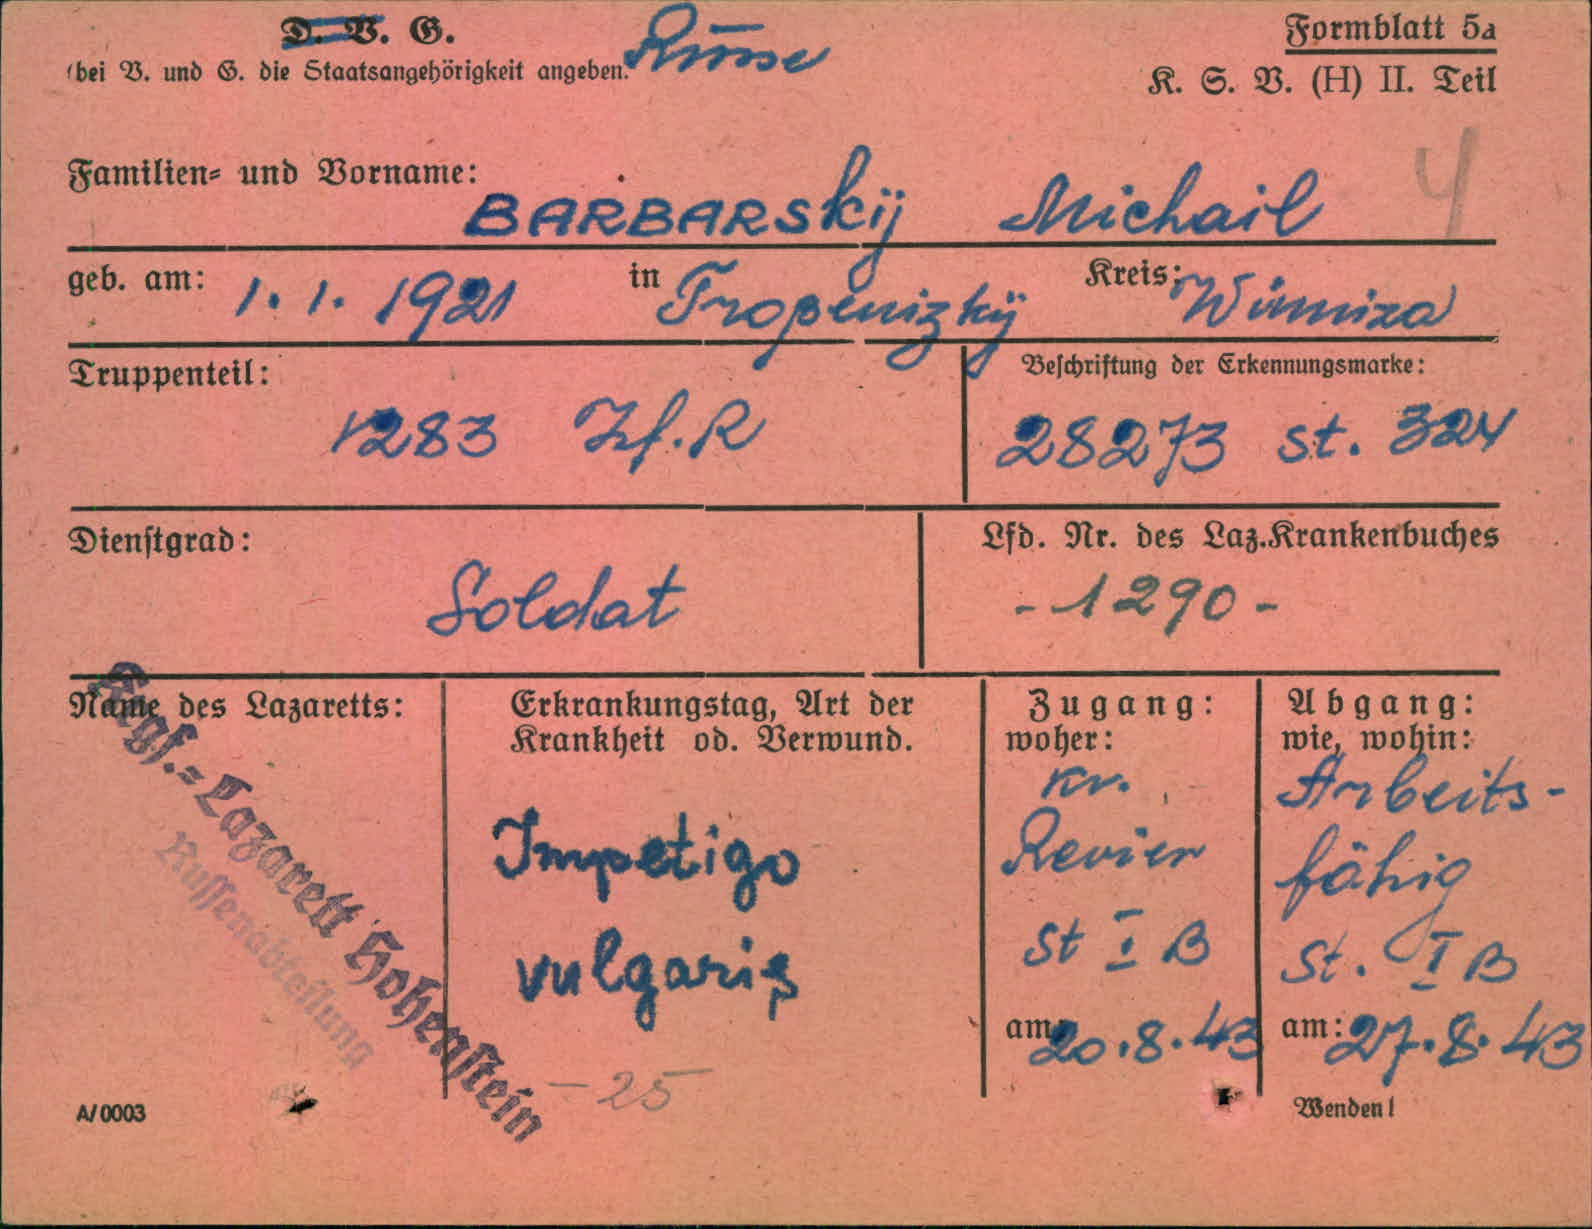 D. V. G. Russe
(bei V. und G. die Staatsangehörigkeit angeben.
Formblatt 5a
K. S. V. (H) II. Teil
4
Familien- und Vorname: BARBARSkij Michail
geb. am: 1. 1. 1921 in Tropenizkij Kreis: Winniza
Truppenteil:
1283 Jf. R
Beschriftung der Erkennungsmarke:
28273 St. 324
Dienstgrad:
Soldat
Lfd. Nr. des Laz.Krankenbuches
- 1290 -
Name des Lazaretts:
Krgf.-Lazarett Hohenstein
Russenabteilung
Erkrankungstag, Art der
Krankheit od. Verwund.
Impetigo
vulgaris
- 25
Zugang:
woher:
Kr.
Revier
St I B
am: 20.8.43
Abgang:
wie, wohin:
Arbeits-
fähig
St. I B
am: 27.8.43
A/0003
Wenden!